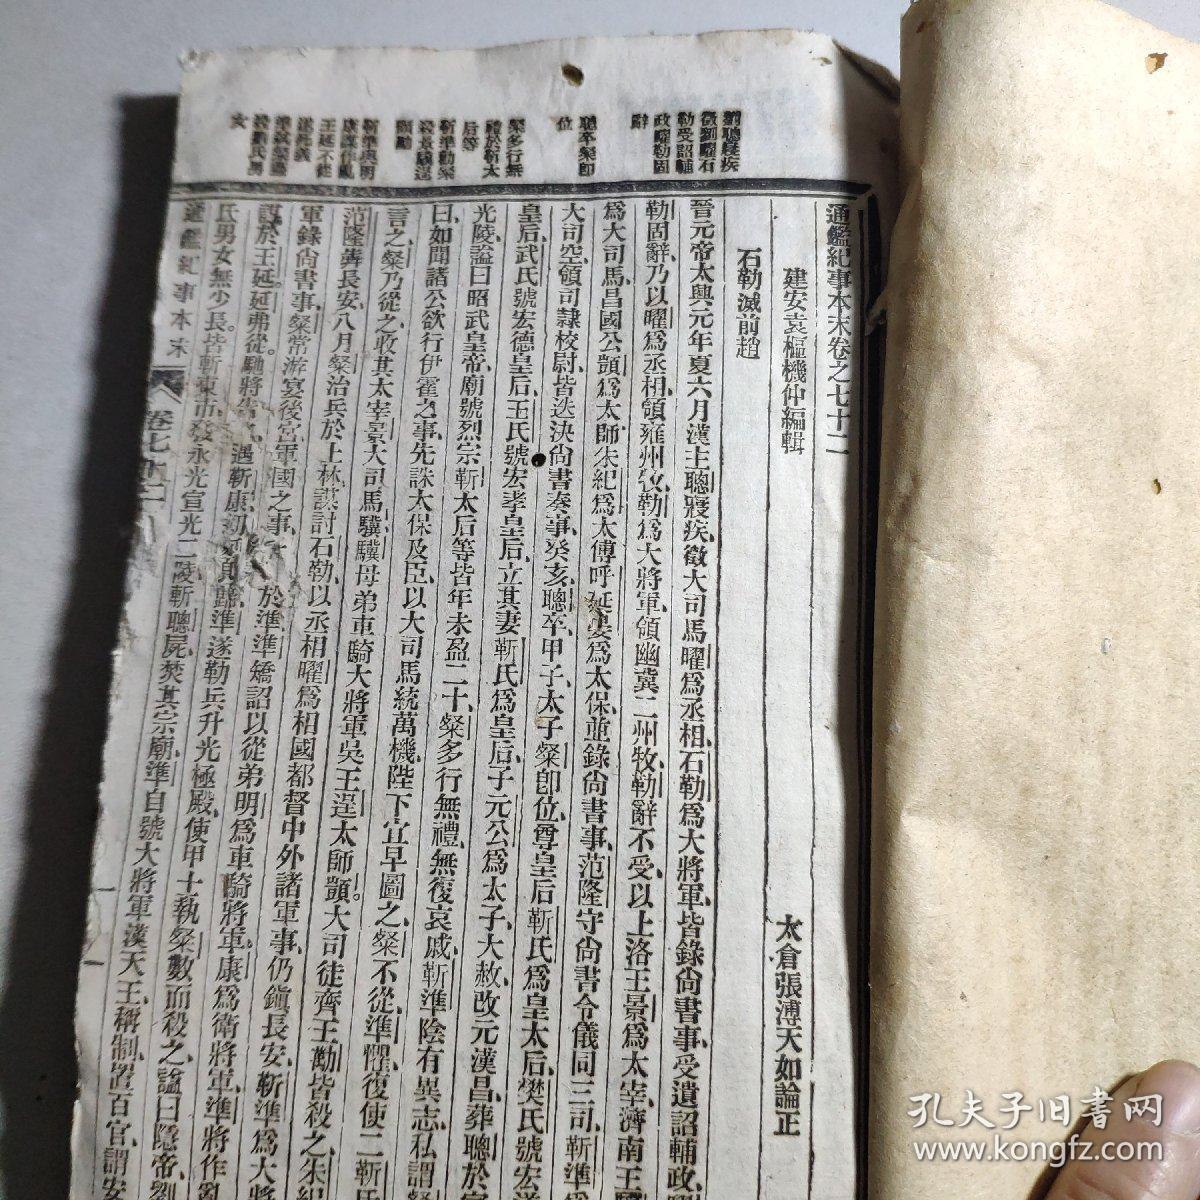 通鑑紀事本末卷之七十二
建安袁樞機仲編輯
太倉張溥天如論正
石勒滅前趙
晉元帝太興元年夏六月漢主聰寢疾、徵大司馬曜為丞相、石勒為大將軍、皆錄尙書事、受遺詔輔政、曜
勒固辭、乃以曜為丞相、領雍州牧、勒為大將軍、領幽冀二州牧、勒辭不受、以上洛王景為太宰、濟南王驥
為大司馬、昌國公顗為太師、朱紀為太傅、呼延晏為太保、並錄尙書事、范隆守尙書令儀同三司、靳準為
大司空、領司隸校尉、皆迭決尙書奏事、癸亥、聰卒、甲子、太子粲卽位、尊皇后靳氏為皇太后、樊氏號宏道
皇后、武氏號宏德皇后、王氏號宏孝皇后、立其妻靳氏為皇后、子元公為太子、大赦、改元漢昌、葬聰於宣
光陵、謚曰昭武皇帝、廟號烈宗、靳太后等皆年未盈二十、粲多行無禮、無復哀戚、靳準陰有異志、私謂粲
曰、如聞諸公欲行伊霍之事、先誅太保及臣、以大司馬統萬機、陛下宜早圖之、粲不從、準懼、復使二靳氏
言之、粲乃從之、收其太宰景、大司馬驥、驥母弟車騎大將軍吳王逞、太師顗。大司徒齊王勱、皆殺之、朱紀
范隆奔長安、八月、粲治兵於上林、謀討石勒、以丞相曜為相國都督中外諸軍事、仍鎮長安、靳準為大將
軍錄尙書事、粲常游宴後宮、軍國之事、於準、準矯詔以從弟明為車騎將軍、康為衛將軍、準將作亂
謀於王延。延弗從、馳將遇靳康、準遂勒兵升光極殿、使甲士執粲、數而殺之、謚曰隱帝、劉
氏男女無少長。皆斬東市、發永光宣光二陵、斬聰屍、焚其宗廟、準自號大將軍漢天王、稱制、置百官、謂安
通鑑紀事本末
卷七十二
聰寢疾
徵劉曜石
勒受詔輔
政曜勒固
辭
聰卒粲卽
位
粲多行無
禮於靳太
后等
靳準勸粲
殺景驥逞
顗勱
靳準與明
康謀作亂
王延不從
準弒粲盡
殺劉氏男
女
孔夫子旧书网
www.kongfz.com